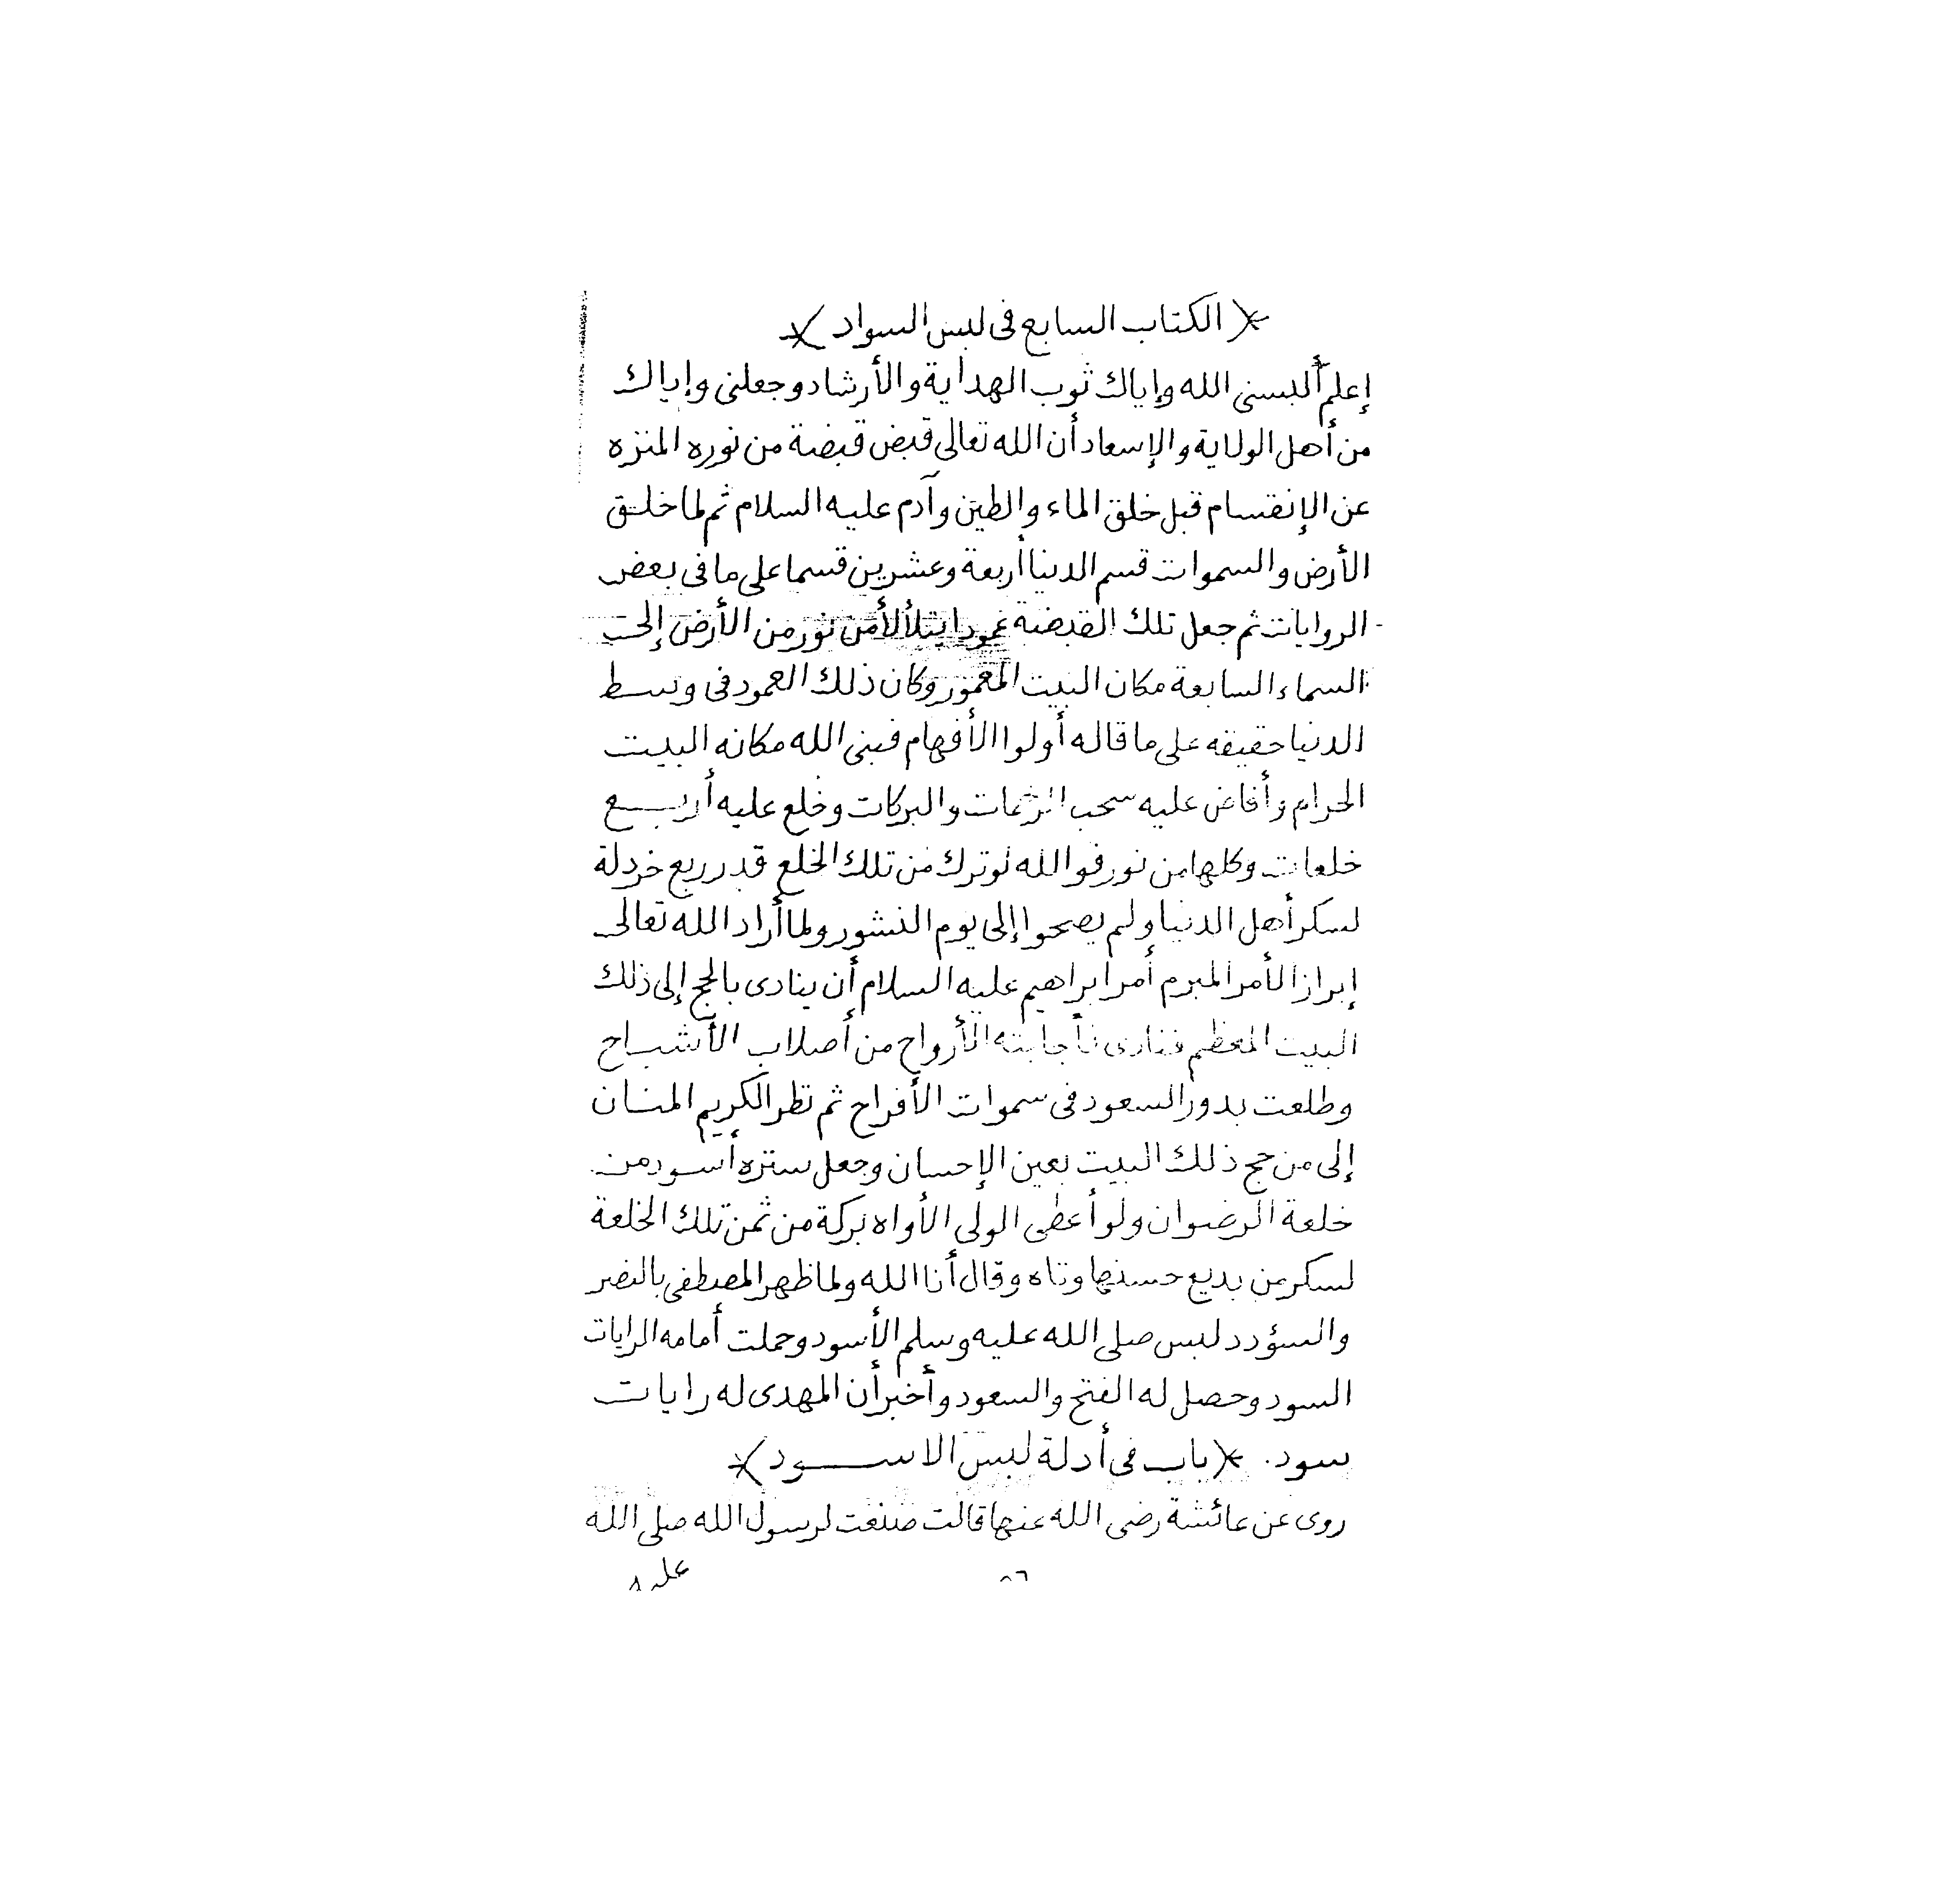 الكتاب السابع فى لبس السواد
إعلم ألبسنى الله وإياك ثوب الهداية والأرشاد وجعلنى وإياك
من أهل الولاية والإسعاد أن الله تعالى قبض قبضة من نوره المنزه
عن الإنقسام قبل خلق الماء والطين وآدم عليه السلام ثم لما خلق
الأرض والسموات قسم الدنيا أربعة وعشرين قسما على ما فى بعض
الروايات ثم جعل تلك القبضة عمودا يتلألأ من نور من الأرض إلى
السماء السابعة مكان البيت المعمور وكان ذلك العمود فى وسط
الدنيا حقيقه على ما قاله أولوا الأفهام فبنى الله مكانه البيت
الحرام وأفاض عليه سحب الرحمات والبركات وخلع عليه أربع
خلعات وكلها من نور فوالله لو ترك من تلك الخلع قدر ربع خردلة
لسكر أهل الدنيا ولم يصحوا إلى يوم النشور ولما أراد الله تعالى
إبراز الأمر المبرم أمر ابراهيم عليه السلام أن ينادى بالحج إلى ذلك
البيت المعظم فنادى فأجابته الأرواح من أصلاب الأشباح
وطلعت بدور السعود فى سموات الأفراح ثم نظر الكريم المنان
إلى من حج ذلك البيت بعين الإحسان وجعل ستره أسود من
خلعة الرضوان ولو أعطى الولى الأواه بركة من ثمن تلك الخلعة
لسكر من بديع حسنها وتاه وقال أنا الله ولما ظهر المصطفى بالنصر
والسؤدد لبس صلى الله عليه وسلم الأسود وحملت أمامه الرايات
السود وحصل له الفتح والسعود وأخبر أن المهدى له رايات
سود. باب فى أدلة لبس الاسود
روى عن عائشة رضى الله عنها قالت صنعت لرسول الله صلى الله
عليه